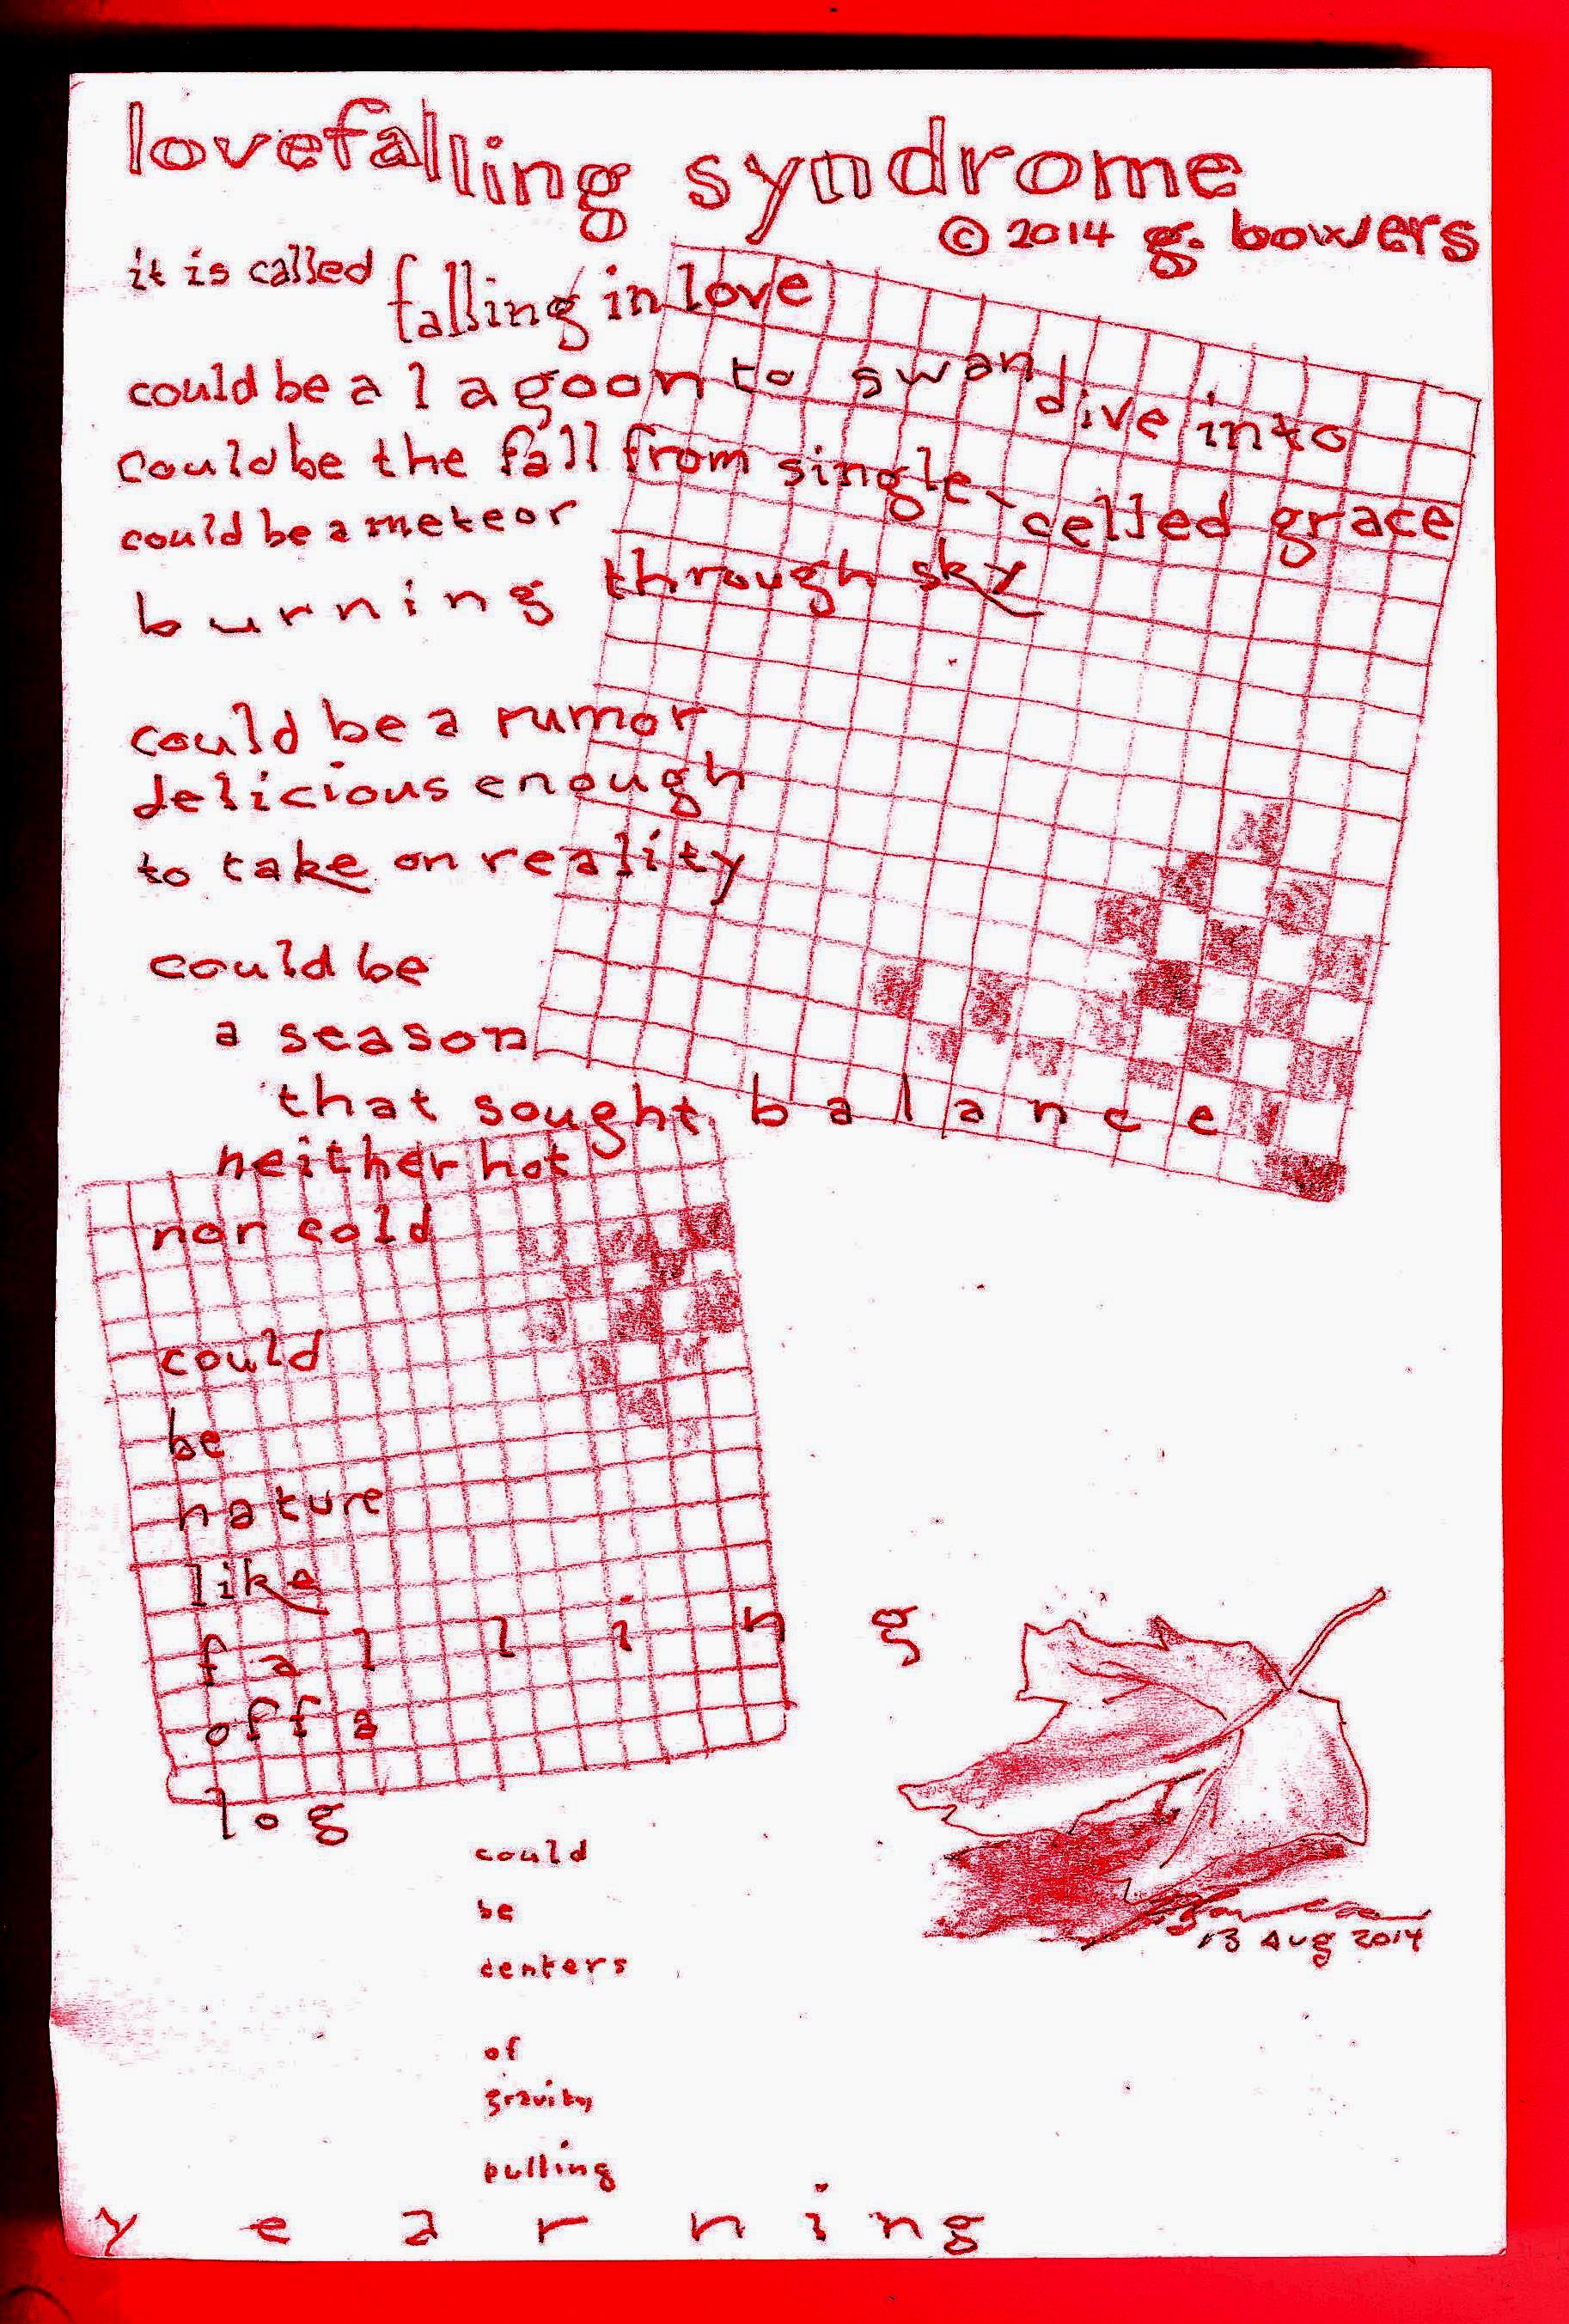 lovefalling syndrome
© 2014 g. bowers
it is called falling in love
could be a lagoon to swan dive into
could be the fall from single-celled grace
could be a meteor
burning through sky
could be a rumor
delicious enough
to take on reality
could be
a season
that sought balance
neither hot
nor cold
could
be
nature
like
falling
off a
log
could
be
centers
of
gravity
pulling
yearning
13 Aug 2014